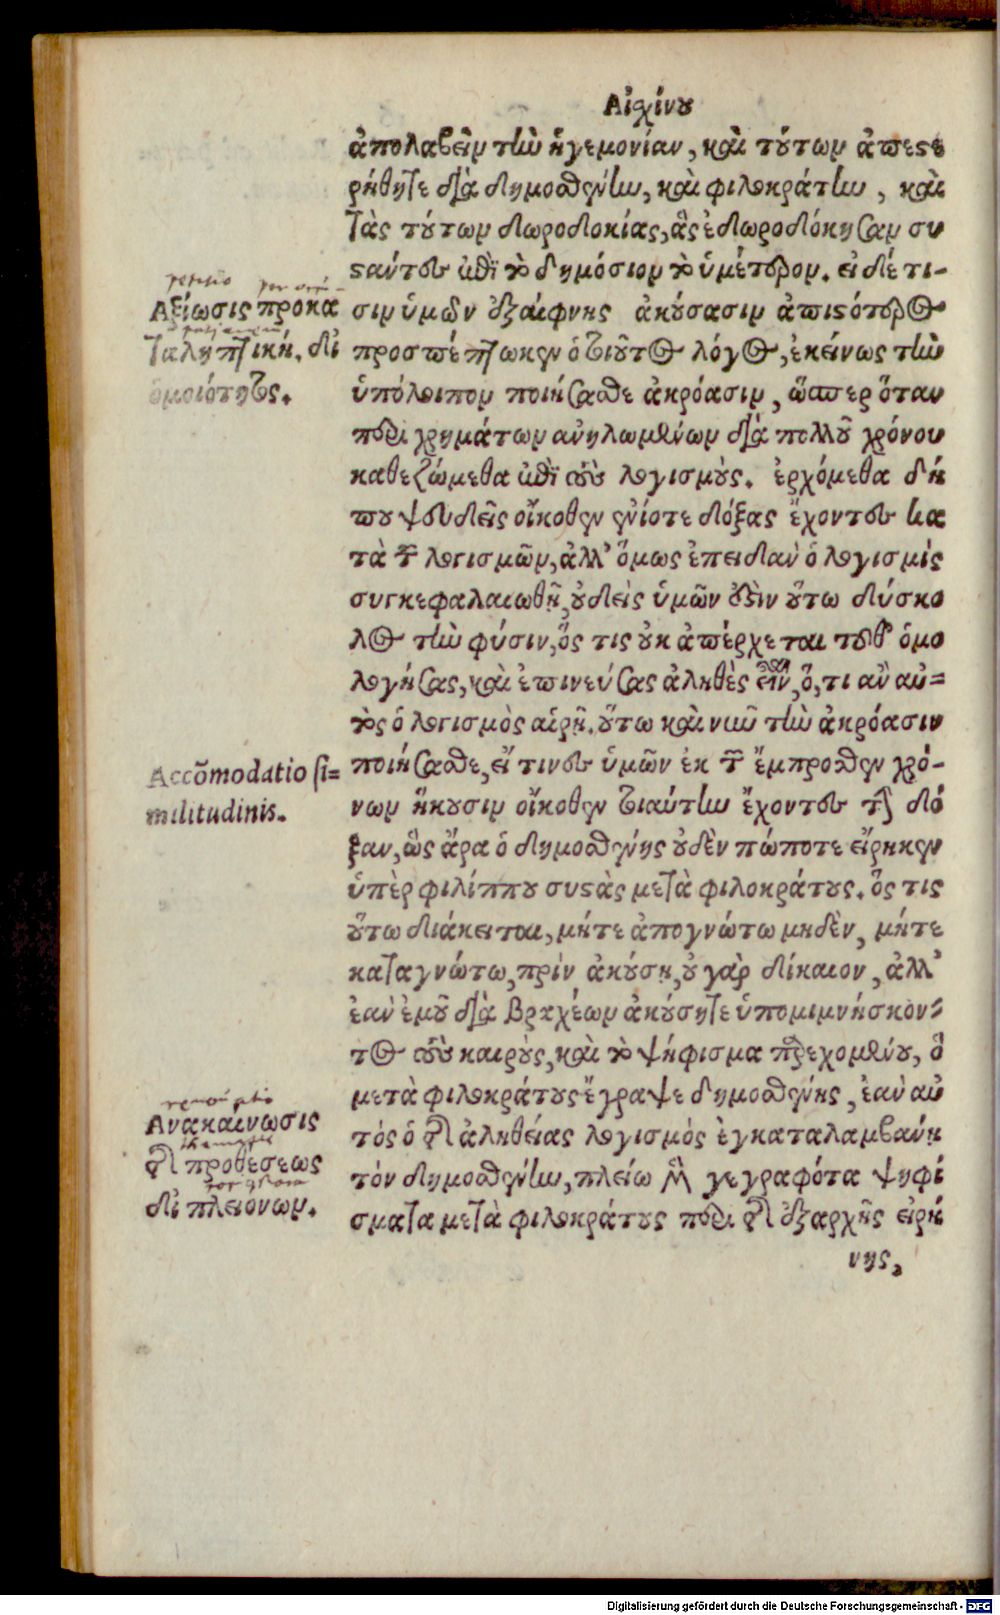 Αἰσχίνου
ἀπολαβεῖν τὴν ἡγεμονίαν, καὶ τούτων ἀπεστε
ρήθητε διὰ δημοσθένην, καὶ φιλοκράτην, καὶ
τὰς τούτων δωροδοκίας, ἃς ἐδωροδόκησαν συ
στάντες ἐπὶ τὸ δημόσιον τὸ ὑμέτερον. εἰ δέ τι-
σιν ὑμῶν ἐξαίφνης ἀκούσασιν ἀπιστότερος
προσπέπτωκεν ὁ τοιοῦτος λόγος, ἐκείνως τὴν
ὑπόλοιπον ποιήσασθε ἀκρόασιν, ὥσπερ ὅταν
περὶ χρημάτων ἀνηλωμένων διὰ πολλοῦ χρόνου
καθεζώμεθα ἐπὶ τοὺς λογισμούς. ἐρχόμεθα δή
που ψευδεῖς οἴκοθεν ἐνίοτε δόξας ἔχοντες κα
τὰ τῶν λογισμῶν, ἀλλ' ὅμως ἐπειδὰν ὁ λογισμὸς
συγκεφαλαιωθῇ, οὐδεὶς ὑμῶν ἐστὶν οὕτω δύσκο
λος τὴν φύσιν, ὅς τις οὐκ ἀπέρχεται τοῦθ' ὁμο
λογήσας, καὶ ἐπινεύσας ἀληθὲς εἶναι, ὅ, τι ἂν αὐ=
τὸς ὁ λογισμὸς αἱρῇ. οὕτω καὶ νῦν τὴν ἀκρόασιν
ποιήσασθε, εἴ τινες ὑμῶν ἐκ τῶν ἔμπροσθεν χρό-
νων ἥκουσιν οἴκοθεν τοιαύτην ἔχοντες τὴν δό
ξαν, ὡς ἄρα ὁ δημοσθένης οὐδὲν πώποτε εἴρηκεν
ὑπὲρ φιλίππου συστὰς μετὰ φιλοκράτους. ὅς τις
οὕτω διάκειται, μήτε ἀπογνώτω μηδὲν, μήτε
καταγνώτω, πρὶν ἀκούσῃ, οὐ γὰρ δίκαιον, ἀλλ'
ἐὰν ἐμοῦ διὰ βραχέων ἀκούσητε ὑπομιμνήσκον=
τος τοὺς καιροὺς, καὶ τὸ ψήφισμα παρεχομένου, ὃ
μετὰ φιλοκράτους ἔγραψε δημοσθένης, ἐὰν αὐ
τὸς ὁ τῆς ἀληθείας λογισμὸς ἐγκαταλαμβάνῃ
τὸν δημοσθένην, πλείω μὲν γεγραφότα ψηφί
σματα μετὰ φιλοκράτους περὶ τῆς ἐξαρχῆς εἰρή
νης,
Αξίωσις προκα
ταληπτική, δι
ὁμοιότητος.
Accōmodatio si=
militudinis.
Ανακαίνωσις
τῆς προθέσεως
διὰ πλειόνων.
Digitalisierung gefördert durch die Deutsche Forschungsgemeinschaft - DFG